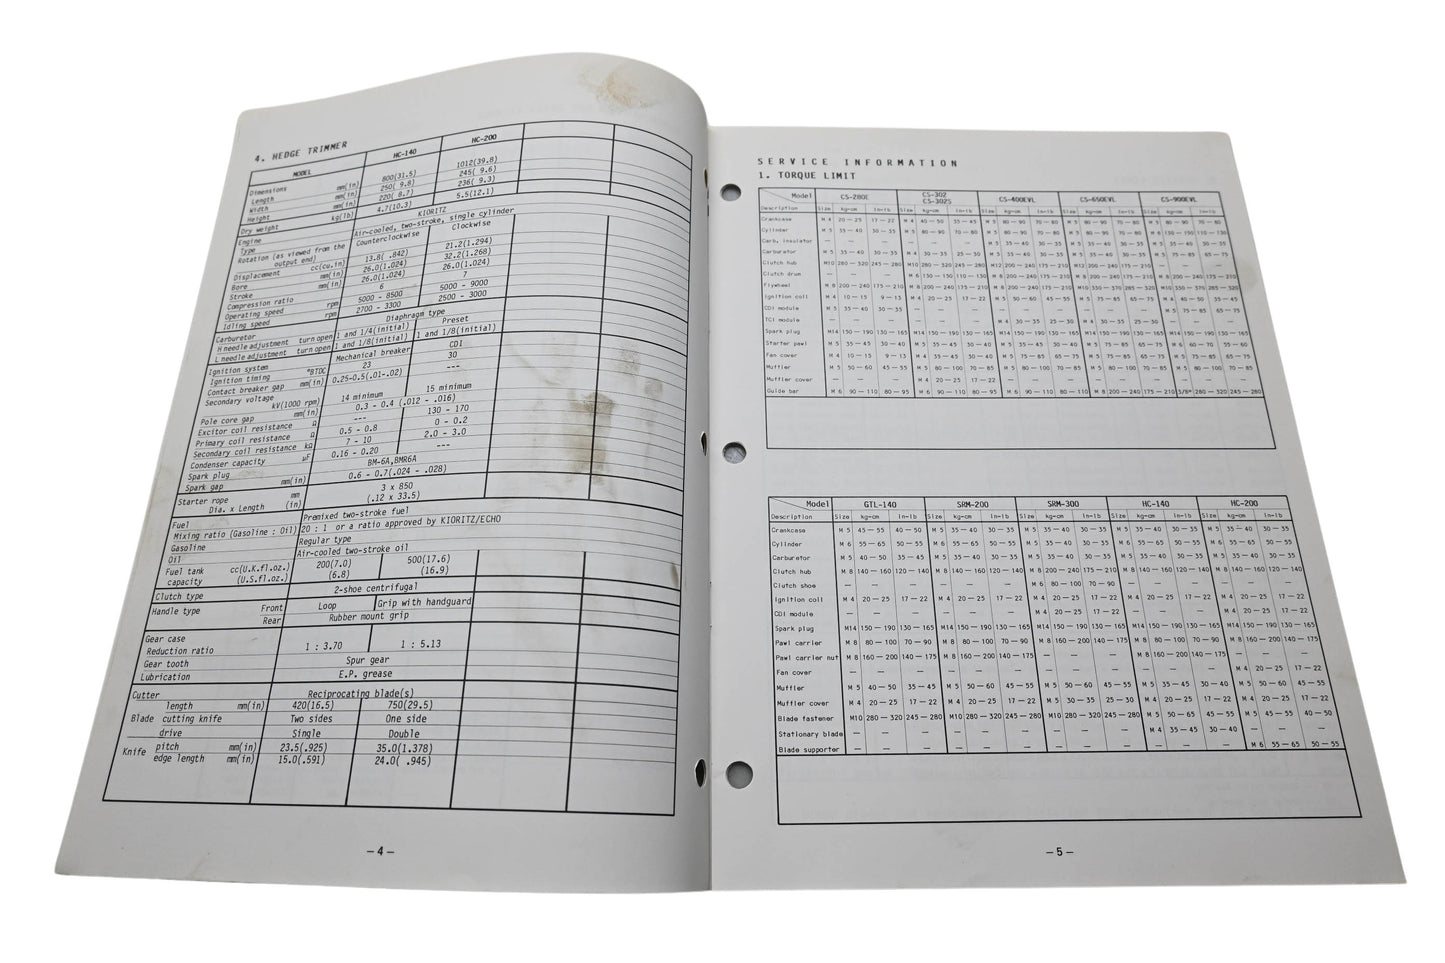 4. HEDGE TRIMMER
MODEL HC-140 HC-200
Dimensions
Length mm(in) 800(31.5) 1012(39.8)
Width mm(in) 250( 9.8) 245( 9.6)
Height mm(in) 220( 8.7) 236( 9.3)
Dry weight kg(lb) 4.7(10.3) 5.5(12.1)
Engine KIORITZ
Type Air-cooled, two-stroke, single cylinder
Rotation (as viewed from the output end) Counterclockwise Clockwise
Displacement cc(cu.in) 13.8( .842) 21.2(1.294)
Bore mm(in) 26.0(1.024) 32.2(1.268)
Stroke mm(in) 26.0(1.024) 26.0(1.024)
Compression ratio 6 7
Operating speed rpm 5000 - 8500 5000 - 9000
Idling speed rpm 2700 - 3300 2500 - 3000
Carburetor Diaphragm type
H needle adjustment turn open 1 and 1/4(initial) Preset
L needle adjustment turn open 1 and 1/8(initial) 1 and 1/8(initial)
Ignition system Mechanical breaker CDI
Ignition timing °BTDC 23 30
Contact breaker gap mm(in) 0.25-0.5(.01-.02) ---
Secondary voltage kV(1000 rpm) 14 minimum 15 minimum
Pole core gap mm(in) 0.3 - 0.4 (.012 - .016)
Excitor coil resistance Ω --- 130 - 170
Primary coil resistance Ω 0.5 - 0.8 0 - 0.2
Secondary coil resistance kΩ 7 - 10 2.0 - 3.0
Condenser capacity μF 0.16 - 0.20 ---
Spark plug BM-6A,BMR6A
Spark gap mm(in) 0.6 - 0.7(.024 - .028)
Starter rope mm 3 x 850
Dia. x Length (in) (.12 x 33.5)
Fuel Premixed two-stroke fuel
Mixing ratio (Gasoline : Oil) 20 : 1 or a ratio approved by KIORITZ/ECHO
Gasoline Regular type
Oil Air-cooled two-stroke oil
Fuel tank cc(U.K.fl.oz.) 200(7.0) 500(17.6)
capacity (U.S.fl.oz.) (6.8) (16.9)
Clutch type 2-shoe centrifugal
Handle type Front Loop Grip with handguard
Rear Rubber mount grip
Gear case
Reduction ratio 1 : 3.70 1 : 5.13
Gear tooth Spur gear
Lubrication E.P. grease
Cutter Reciprocating blade(s)
length mm(in) 420(16.5) 750(29.5)
Blade cutting knife Two sides One side
drive Single Double
Knife pitch mm(in) 23.5(.925) 35.0(1.378)
edge length mm(in) 15.0(.591) 24.0( .945)
-4-
SERVICE INFORMATION
1. TORQUE LIMIT
Model CS-280E CS-302 CS-302S CS-400EVL CS-650EVL CS-900EVL
Description Size kg-cm in-lb Size kg-cm in-lb Size kg-cm in-lb Size kg-cm in-lb Size kg-cm in-lb
Crankcase M 4 20 — 25 17 — 22 M 4 40 — 50 35 — 45
Cylinder M 5 35 — 40 30 — 35
Carb. insulator
Carburetor M 5 35 — 40 30 — 35
Clutch hub M10 280 — 320 245 — 280 M10 280 — 320 245 — 280
Clutch drum
Flywheel M 8 200 — 240 175 — 210
Ignition coil M 4 10 — 15 9 — 13 M 4 20 — 25 17 — 22 M 5 50 — 60 45 — 55
CDI module M 5 35 — 40 30 — 35
TCI module
Spark plug M14 150 — 190 130 — 165 M14 150 — 190 130 — 165 M14 150 — 190 130 — 165 M14 150 — 190 130 — 165 M14 150 — 190 130 — 165
Starter pawl M 5 35 — 45 30 — 40
Fan cover M 4 10 — 15 9 — 13
Muffler M 5 50 — 60 45 — 55
Muffler cover — — — M 4 20 — 25 17 — 22
Guide bar M 6 90 — 110 80 — 95 M 6 90 — 110 80 — 95 M 6 90 — 110 80 — 110 M 8 200 — 240 175 — 210 5/8" 280 — 320 245 — 280
Model GTL-140 SRM-200 SRM-300 HC-140 HC-200
Description Size kg-cm in-lb Size kg-cm in-lb Size kg-cm in-lb Size kg-cm in-lb Size kg-cm in-lb
Crankcase M 5 45 — 55 40 — 50 M 5 35 — 40 30 — 35 M 5 35 — 40 30 — 35 M 5 35 — 40 30 — 35 M 5 35 — 40 30 — 35
Cylinder M 6 55 — 65 50 — 55 M 5 35 — 40 30 — 35 M 5 35 — 40 30 — 35 M 6 55 — 65 50 — 55 M 5 35 — 40 30 — 35
Carburetor M 5 40 — 50 35 — 45 M 5 35 — 40 30 — 35 M 5 35 — 40 30 — 35 M 5 35 — 40 30 — 35 M 5 35 — 40 30 — 35
Clutch hub M 8 140 — 160 120 — 140 M 8 140 — 160 120 — 140 M 8 200 — 240 175 — 210 M 8 140 — 160 120 — 140 M 8 140 — 160 120 — 140
Clutch shoe — — — — — — M 6 80 — 100 70 — 90 — — — — — —
Ignition coil M 4 20 — 25 17 — 22 M 4 20 — 25 17 — 22 M 4 20 — 25 17 — 22 M 4 20 — 25 17 — 22 M 4 20 — 25 17 — 22
CDI module — — — — — — M 4 20 — 25 17 — 22 — — — M 4 20 — 25 17 — 22
Spark plug M14 150 — 190 130 — 165 M14 150 — 190 130 — 165 M14 150 — 190 130 — 165 M14 150 — 190 130 — 165 M14 150 — 190 130 — 165
Pawl carrier M 8 80 — 100 70 — 90 M 8 80 — 100 70 — 90 M 8 160 — 200 140 — 175 M 8 80 — 100 70 — 90 M 8 160 — 200 140 — 175
Pawl carrier nut M 8 160 — 200 140 — 175 M 8 160 — 200 140 — 175 — — — M 8 160 — 200 140 — 175 — — —
Fan cover — — — — — — — — — — — — M 4 20 — 25 17 — 22
Muffler M 5 40 — 50 35 — 45 M 5 50 — 60 45 — 55 M 5 50 — 60 45 — 55 M 5 35 — 45 30 — 40 M 5 50 — 60 45 — 55
Muffler cover M 4 20 — 25 17 — 22 M 4 20 — 25 17 — 22 M 4 20 — 25 17 — 22 M 4 20 — 25 17 — 22 M 4 20 — 25 17 — 22
Blade fastener M10 280 — 320 245 — 280 M10 280 — 320 245 — 280 M10 280 — 320 245 — 280 M 5 50 — 65 45 — 55 M 5 45 — 55 40 — 50
Stationary blade — — — — — — — — — M 4 35 — 45 30 — 40 — — —
Blade supporter — — — — — — — — — — — — M 6 55 — 65 50 — 55
-5-